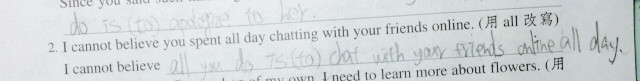 Since you said such
do is (to) apologize to her.
2. I cannot believe you spent all day chatting with your friends online. (用 all 改寫)
I cannot believe all you do is (to) chat with your friends online all day.
my own I need to learn more about flowers. (用